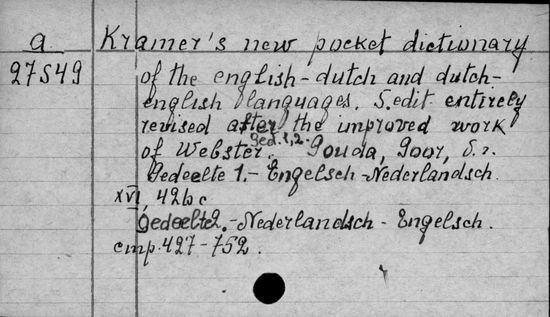 a
27549
Kramer's new pocket dictionary
of the english-dutch and dutch-
english languages. 5.edit entirely
revised after the improved work
of Webster. Ged.1,2. Gouda, Goor, s.a.
Gedeelte 1.- Engelsch-Nederlandsch.
XVI, 426 c
Gedeelte 2.-Nederlandsch - Engelsch.
cmp.427-752.